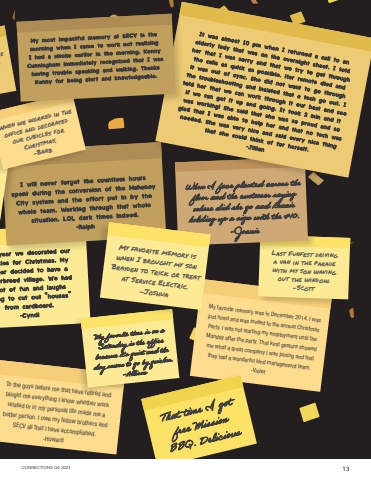 My most impactful memory at SECV is the
morning when I came to work not realizing
I had a stroke earlier in the morning. Kenny
Cunningham immediately recognized that I was
having trouble speaking and walking. Thanks
Kenny for being alert and knowledgeable.
It was almost 10 pm when I returned a call to an
elderly lady that was on the overnight sheet. I told
her that I was sorry and that we try to get through
the calls as quick as possible. Her remote died and
it was out of sync. She did not want to go through
the troubleshooting and insisted that a tech go out. I
told her that we can work through it our best and see
if we can get it up and going. It took 2 min and it
was working! She said that she was so pleased and so
glad that I was able to help her and that no tech was
needed. She was very nice and said every nice thing
that she could think of for herself.
-Jillian
When we worked in the
office and decorated
our cubicles for
Christmas.
-Barb
I will never forget the countless hours
spent during the conversion of the Mahanoy
City system and the effort put in by the
whole team. Working through that whole
situation. LOL dark times indeed.
-Ralph
When A face planted across the
floor and the customer saying
where did she go and Annie
holding up a sign with the #10.
-Jennie
year we decorated our
les for Christmas. My
er decided to have a
erbread village. We had
ot of fun and laughs
ng to cut out "houses"
from cardboard.
-Cyndi
My favorite memory is
when I brought my son
Braiden to trick or treat
at Service Electric.
-Joshua
Last Funfest driving
a van in the parade
with my son waving
out the window.
-Scott
My favorite memory was in December 2014, I was
just hired and was invited to the annual Christmas
Party. I was not starting my employment until the
Monday after the party. That kind gesture showed
me what a great company I was joining and feel
they had a wonderful kind management team.
My favorite time is on a
Saturday in the office
because it's quiet and the
day seems to go by quicker.
To the guys before me that have retired and
taught me everything I know whether work
related or in my personal life made me a
better person. I owe my fellow brothers and
SECV all that I have accomplished.
-Howard
That time I got
free Mission
BBQ. Delicious
CONNECTIONS Q4 2023
13